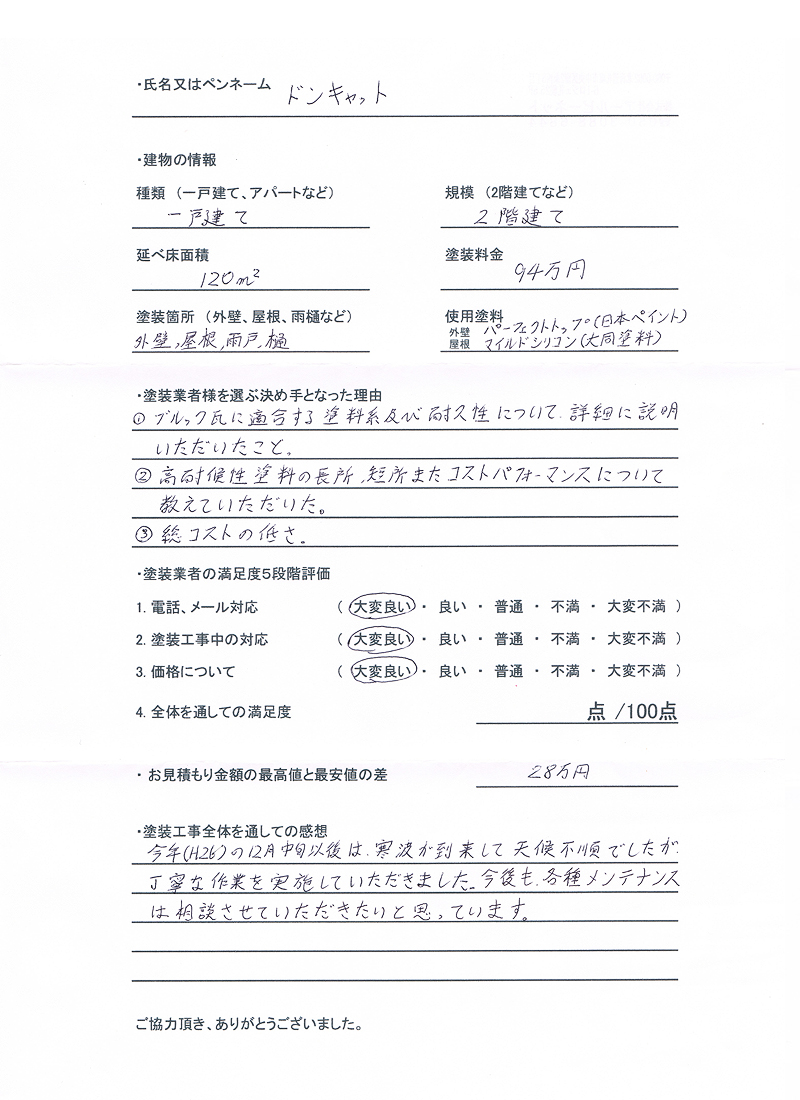 ・氏名又はペンネーム ドンキャット
・建物の情報
種類 （一戸建て、アパートなど） 規模 （2階建てなど）
一戸建て 2階建て
延べ床面積 塗装料金
120m² 94万円
塗装箇所 （外壁、屋根、雨樋など） 使用塗料
外壁,屋根,雨戸,樋 外壁 パーフェクトトップ(日本ペイント)
屋根 マイルドシリコン(大同塗料)
・塗装業者様を選ぶ決め手となった理由
① ブルック瓦に適合する塗料系及び耐久性について、詳細に説明
いただいたこと。
② 高耐候性塗料の長所、短所またコストパフォーマンスについて
教えていただいた。
③ 総コストの低さ。
・塗装業者の満足度5段階評価
1. 電話、メール対応 （ 大変良い ・ 良い ・ 普通 ・ 不満 ・ 大変不満 ）
2. 塗装工事中の対応 （ 大変良い ・ 良い ・ 普通 ・ 不満 ・ 大変不満 ）
3. 価格について （ 大変良い ・ 良い ・ 普通 ・ 不満 ・ 大変不満 ）
4. 全体を通しての満足度 点 /100点
・ お見積もり金額の最高値と最安値の差 28万円
・塗装工事全体を通しての感想
今年(H26)の12月中旬以後は、寒波が到来して天候不順でしたが
丁寧な作業を実施していただきました。今後も、各種メンテナンス
は相談させていただきたいと思っています。
ご協力頂き、ありがとうございました。